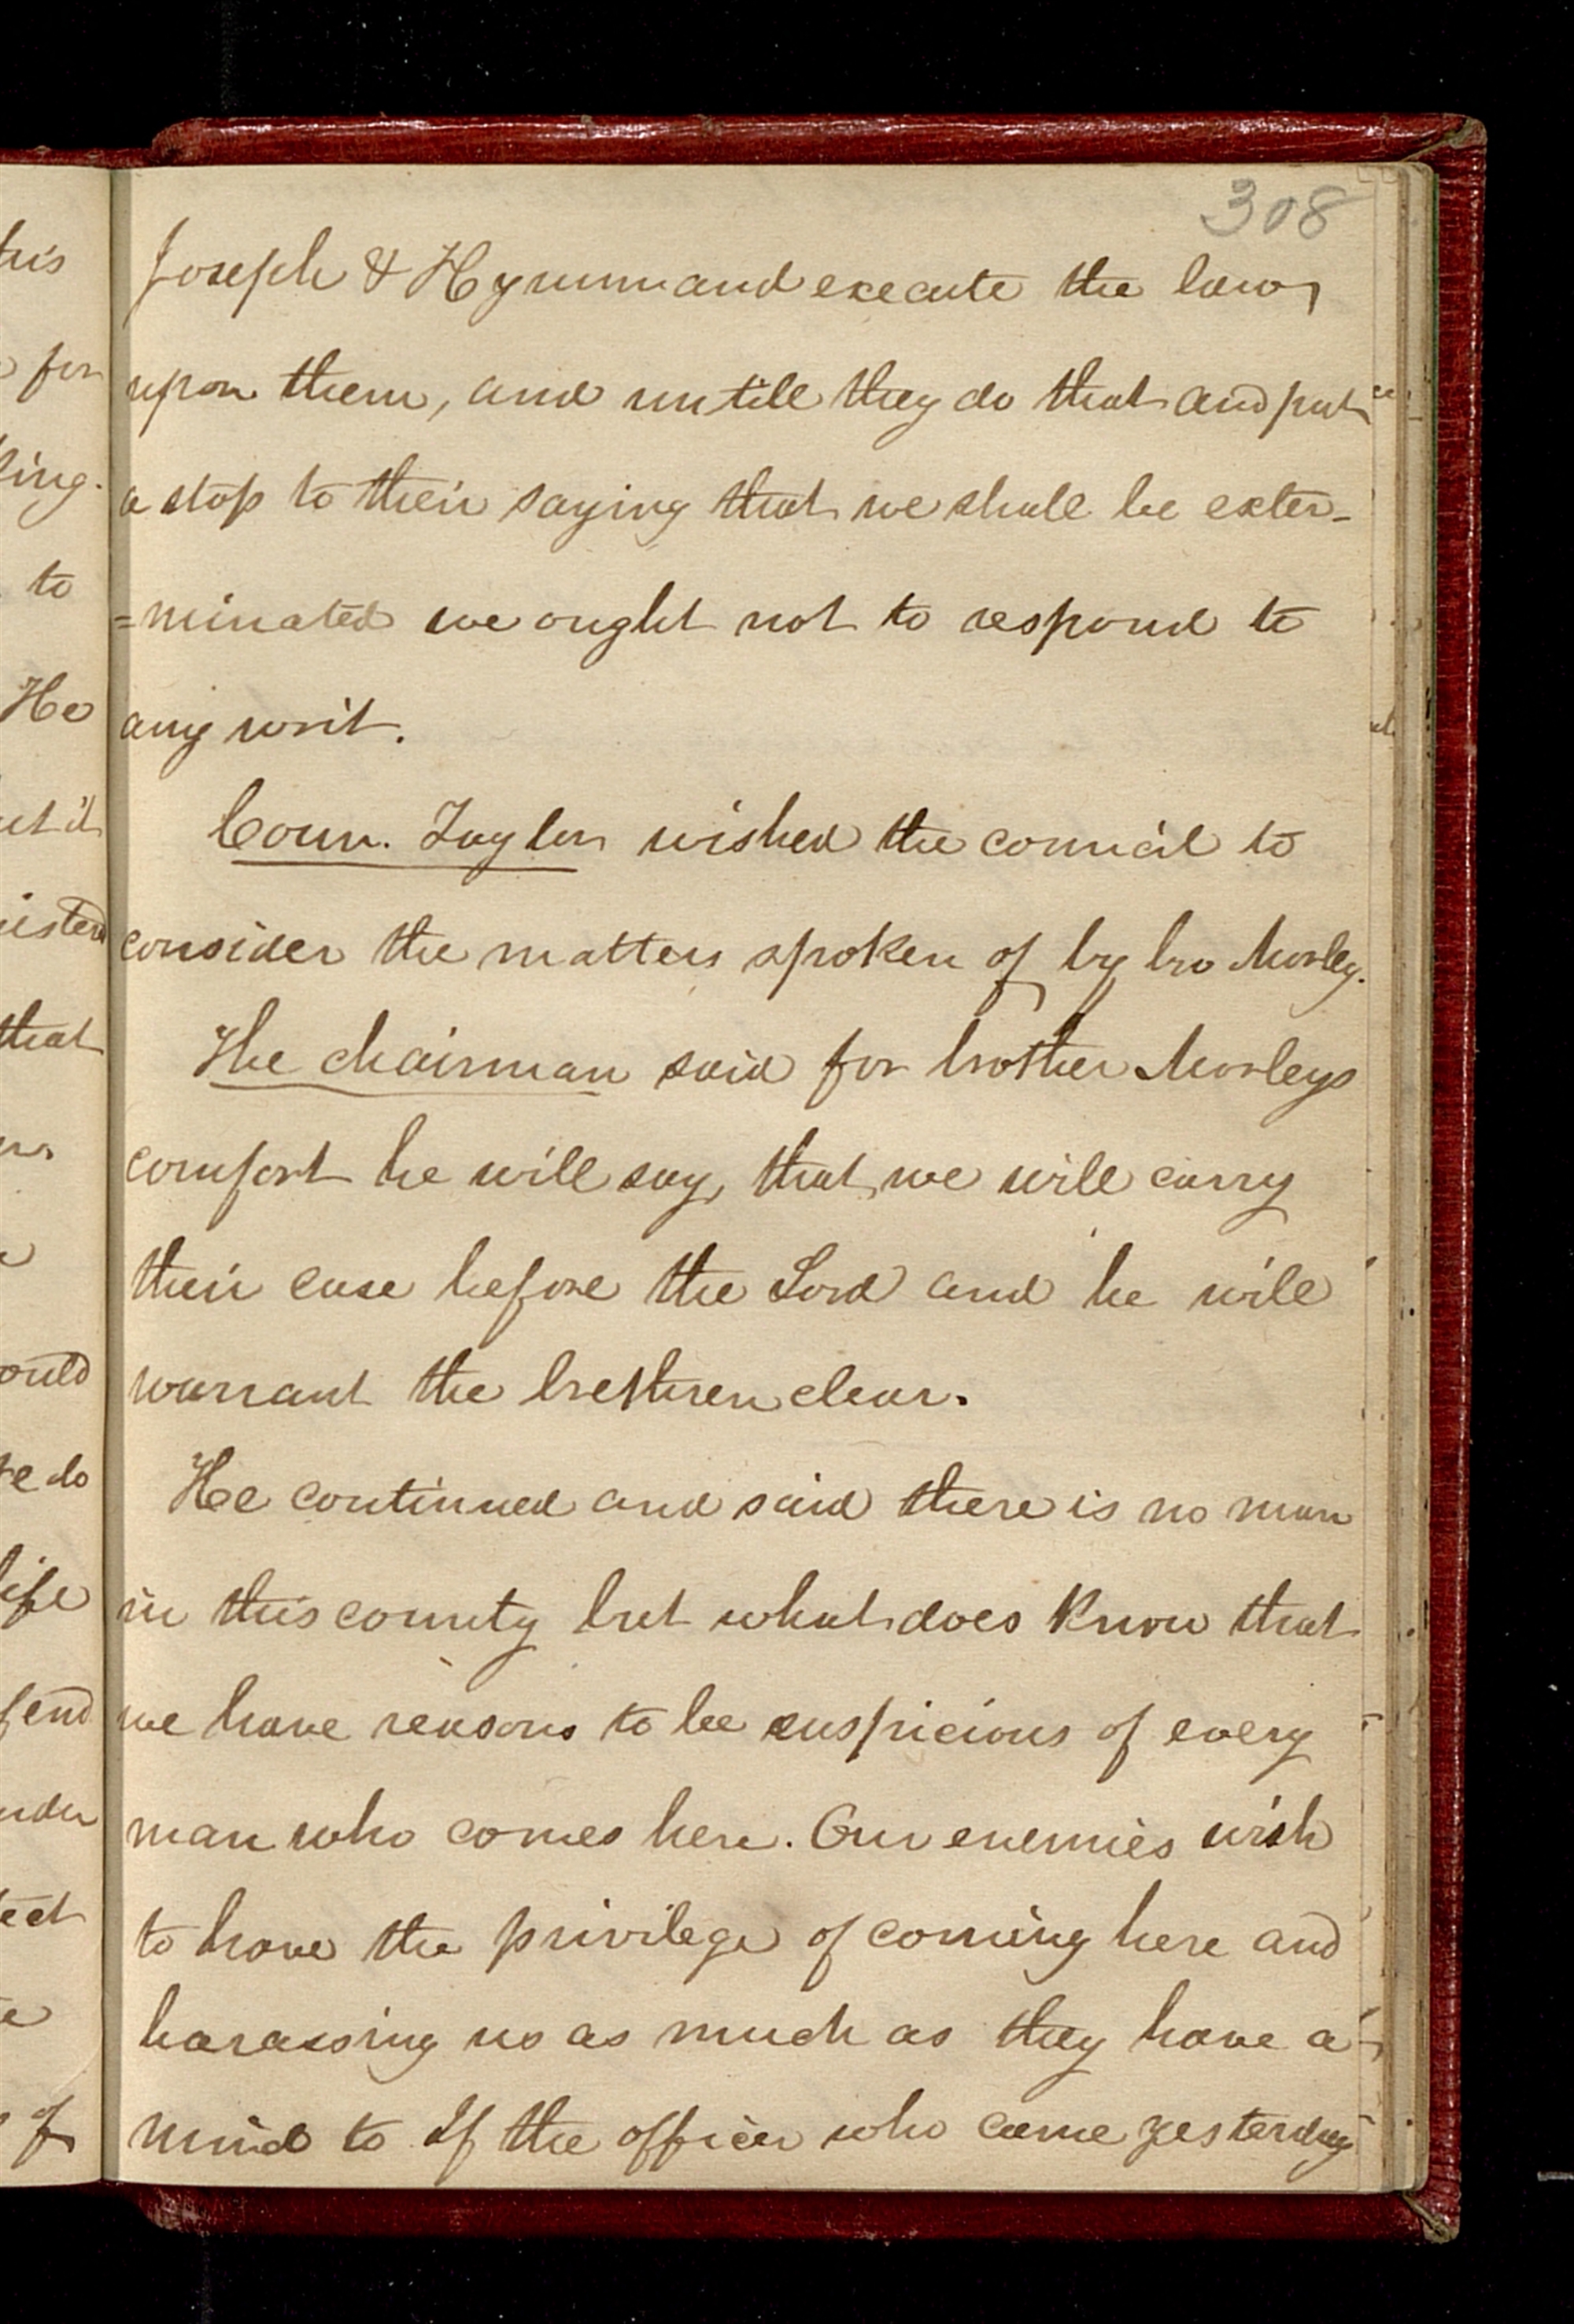 308
Joseph & Hyrum and execute the law
upon them, and untill they do that and put
a stop to their saying that we shall be exter-
=minated we ought not to respond to
any writ.
Coun. Taylor wished the council to
consider the matters spoken of by bro Morley.
The chairman said for brother Morleys
comfort he will say, that we will carry
their case before the Lord and he will
warrant the brethren clear.
He continued and said there is no man
in this county but what does know that
we have reasons to be suspicious of every
man who comes here. Our enemies wish
to have the privilege of coming here and
harassing us as much as they have a
mind to If the officer who came yesterday
his
for
ling.
to
He
ut it
isted
that
ould
re do
life
fend
nder
ect
of